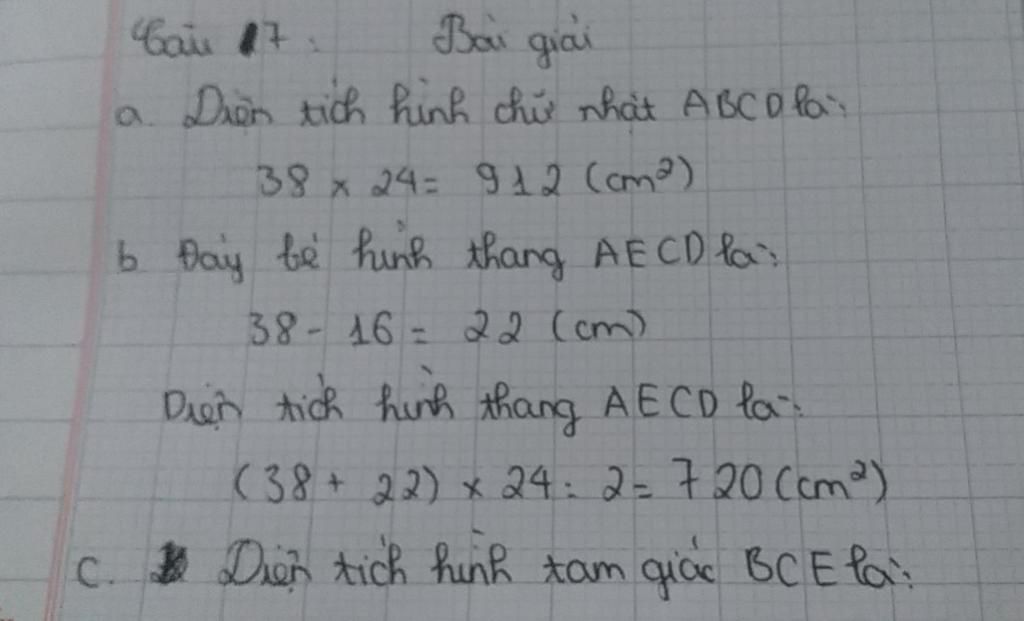 Câu 17: Bài giải
a. Diện tích hình chữ nhật ABCD là:
38 × 24 = 912 (cm²)
b Đáy bé hình thang AECD là:
38 - 16 = 22 (cm)
Diện tích hình thang AECD là:
(38 + 22) × 24 : 2 = 720 (cm²)
c. Diện tích hình tam giác BCE là: